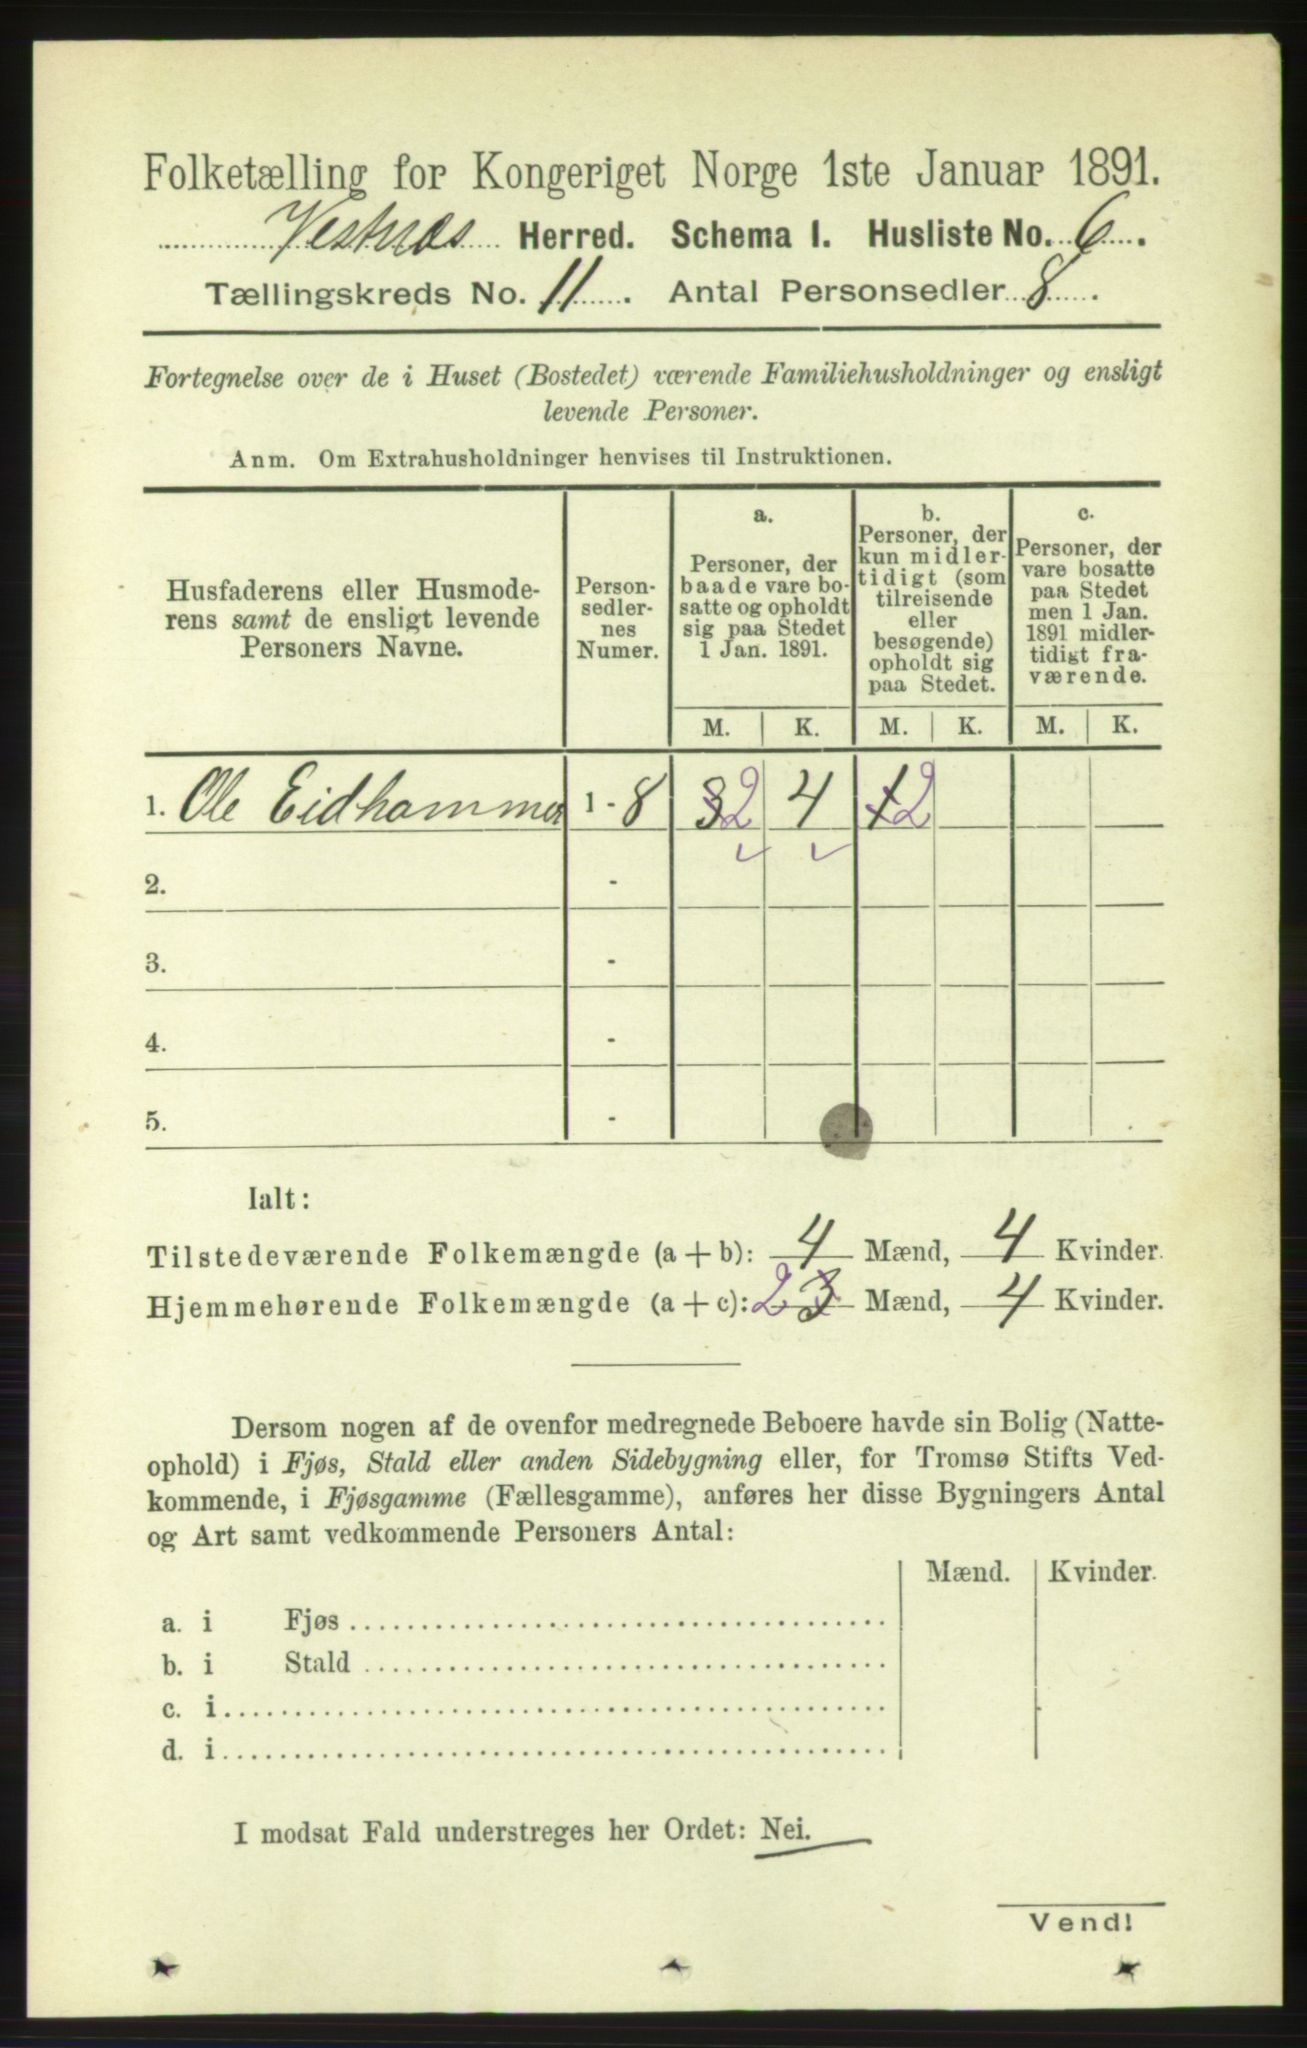 Folketælling for Kongeriget Norge 1ste Januar 1891.
Vestnæs Herred. Schema I. Husliste No. 6.
Tællingskreds No. 11. Antal Personsedler 8.
Fortegnelse over de i Huset (Bostedet) værende Familiehusholdninger og ensligt
levende Personer.
Anm. Om Extrahusholdninger henvises til Instruktionen.
Husfaderens eller Husmode-
rens samt de ensligt levende
Personers Navne.
Person-
sedler-
nes
Numer.
a.
Personer, der
baade vare bo-
satte og opholdt
sig paa Stedet
1 Jan. 1891.
b.
Personer, der
kun midler-
tidigt (som
tilreisende
eller
besøgende)
opholdt sig
paa Stedet.
c.
Personer, der
vare bosatte
paa Stedet
men 1 Jan.
1891 midler-
tidigt fra-
værende.
M. K. M. K. M. K.
1. Ole Eidhammer 1 - 8 3 2 4 1 2
2. -
3. -
4. -
5. -
Ialt:
Tilstedeværende Folkemængde (a + b): 4 Mænd, 4 Kvinder.
Hjemmehørende Folkemængde (a + c): 2 3 Mænd, 4 Kvinder.
Dersom nogen af de ovenfor medregnede Beboere havde sin Bolig (Natte-
ophold) i Fjøs, Stald eller anden Sidebygning eller, for Tromsø Stifts Ved-
kommende, i Fjøsgamme (Fællesgamme), anføres her disse Bygningers Antal
og Art samt vedkommende Personers Antal:
Mænd. Kvinder.
a. i Fjøs
b. i Stald
c. i
d. i
I modsat Fald understreges her Ordet: Nei.
Vend!